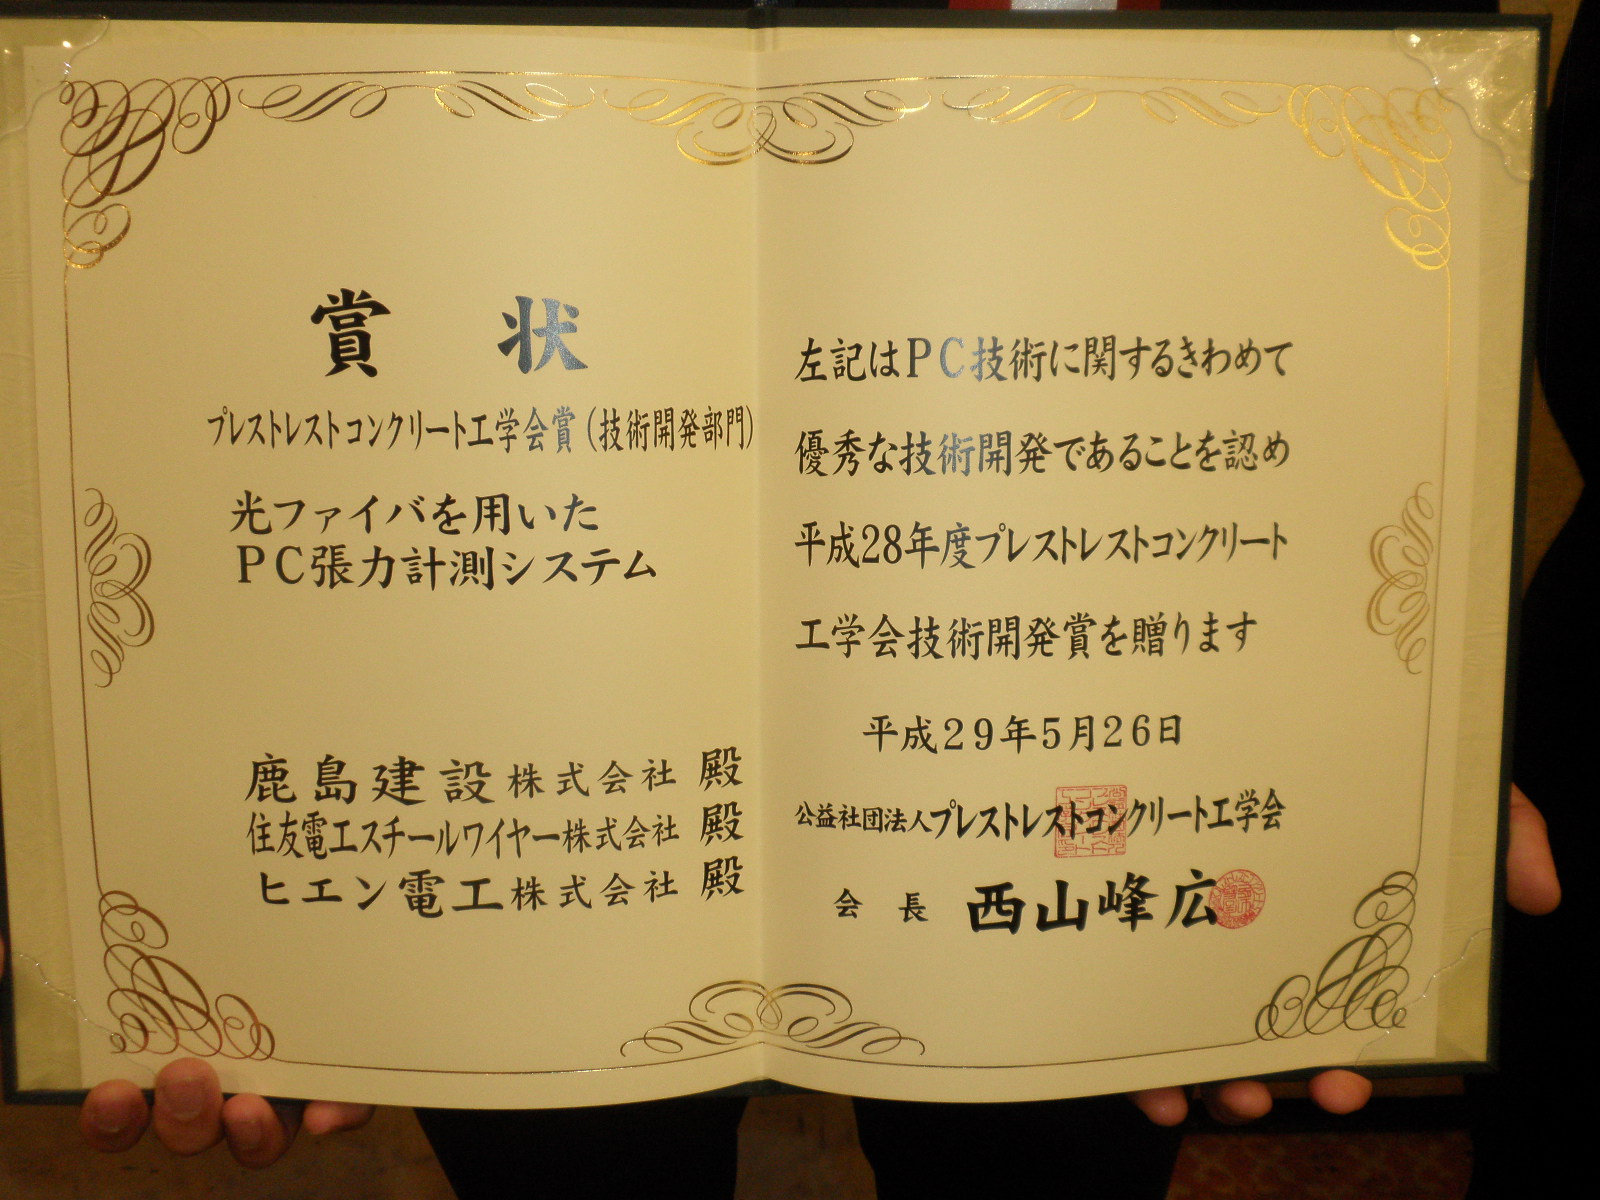 賞状
プレストレストコンクリート工学会賞(技術開発部門)
光ファイバを用いた
PC張力計測システム
鹿島建設株式会社 殿
住友電工スチールワイヤー株式会社 殿
ヒエン電工株式会社 殿
左記はPC技術に関するきわめて
優秀な技術開発であることを認め
平成28年度プレストレストコンクリート
工学会技術開発賞を贈ります
平成29年5月26日
公益社団法人プレストレストコンクリート工学会
会長 西山峰広